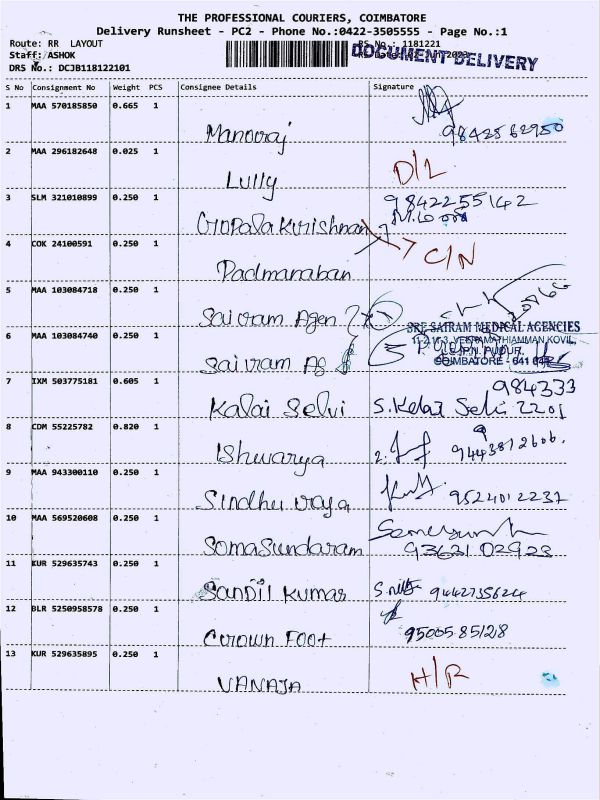 THE PROFESSIONAL COURIERS, COIMBATORE
Delivery Runsheet - PC2 - Phone No.:0422-3505555 - Page No.:1
Route: RR LAYOUT
RS No.: 1181221
Staff: ASHOK
DOCUMENT DELIVERY
DRS No.: DCJB118122101
S No Consignment No Weight PCS Consignee Details Signature
1 MAA 570185850 0.665 1
Manooraj 9842562950
2 MAA 296182648 0.025 1
Lully D/L
3 SLM 321010899 0.250 1 9842255142
Gopala Kurishnan
4 COK 24100591 0.250 1 C/N
Padmanaban
5 MAA 103084718 0.250 1
Sairam Agen
SRE SAIRAM MEDICAL AGENCIES
6 MAA 103084740 0.250 1
Sairam Ag
COIMBATORE - 641
7 IXM 503775181 0.605 1 984333
Kalai Selvi S. Kalai Selvi 2201
8 CDM 55225782 0.820 1
Ishwarya 9443812606.
9 MAA 943300110 0.250 1
Sindhu uraja 9524012237
10 MAA 569520608 0.250 1
SomaSundaram 9362102923
11 KUR 529635743 0.250 1
Sandil Kumar 9442735624
12 BLR 5250958578 0.250 1
Corown Foot 9500585128
13 KUR 529635895 0.250 1
VANAJA H/R